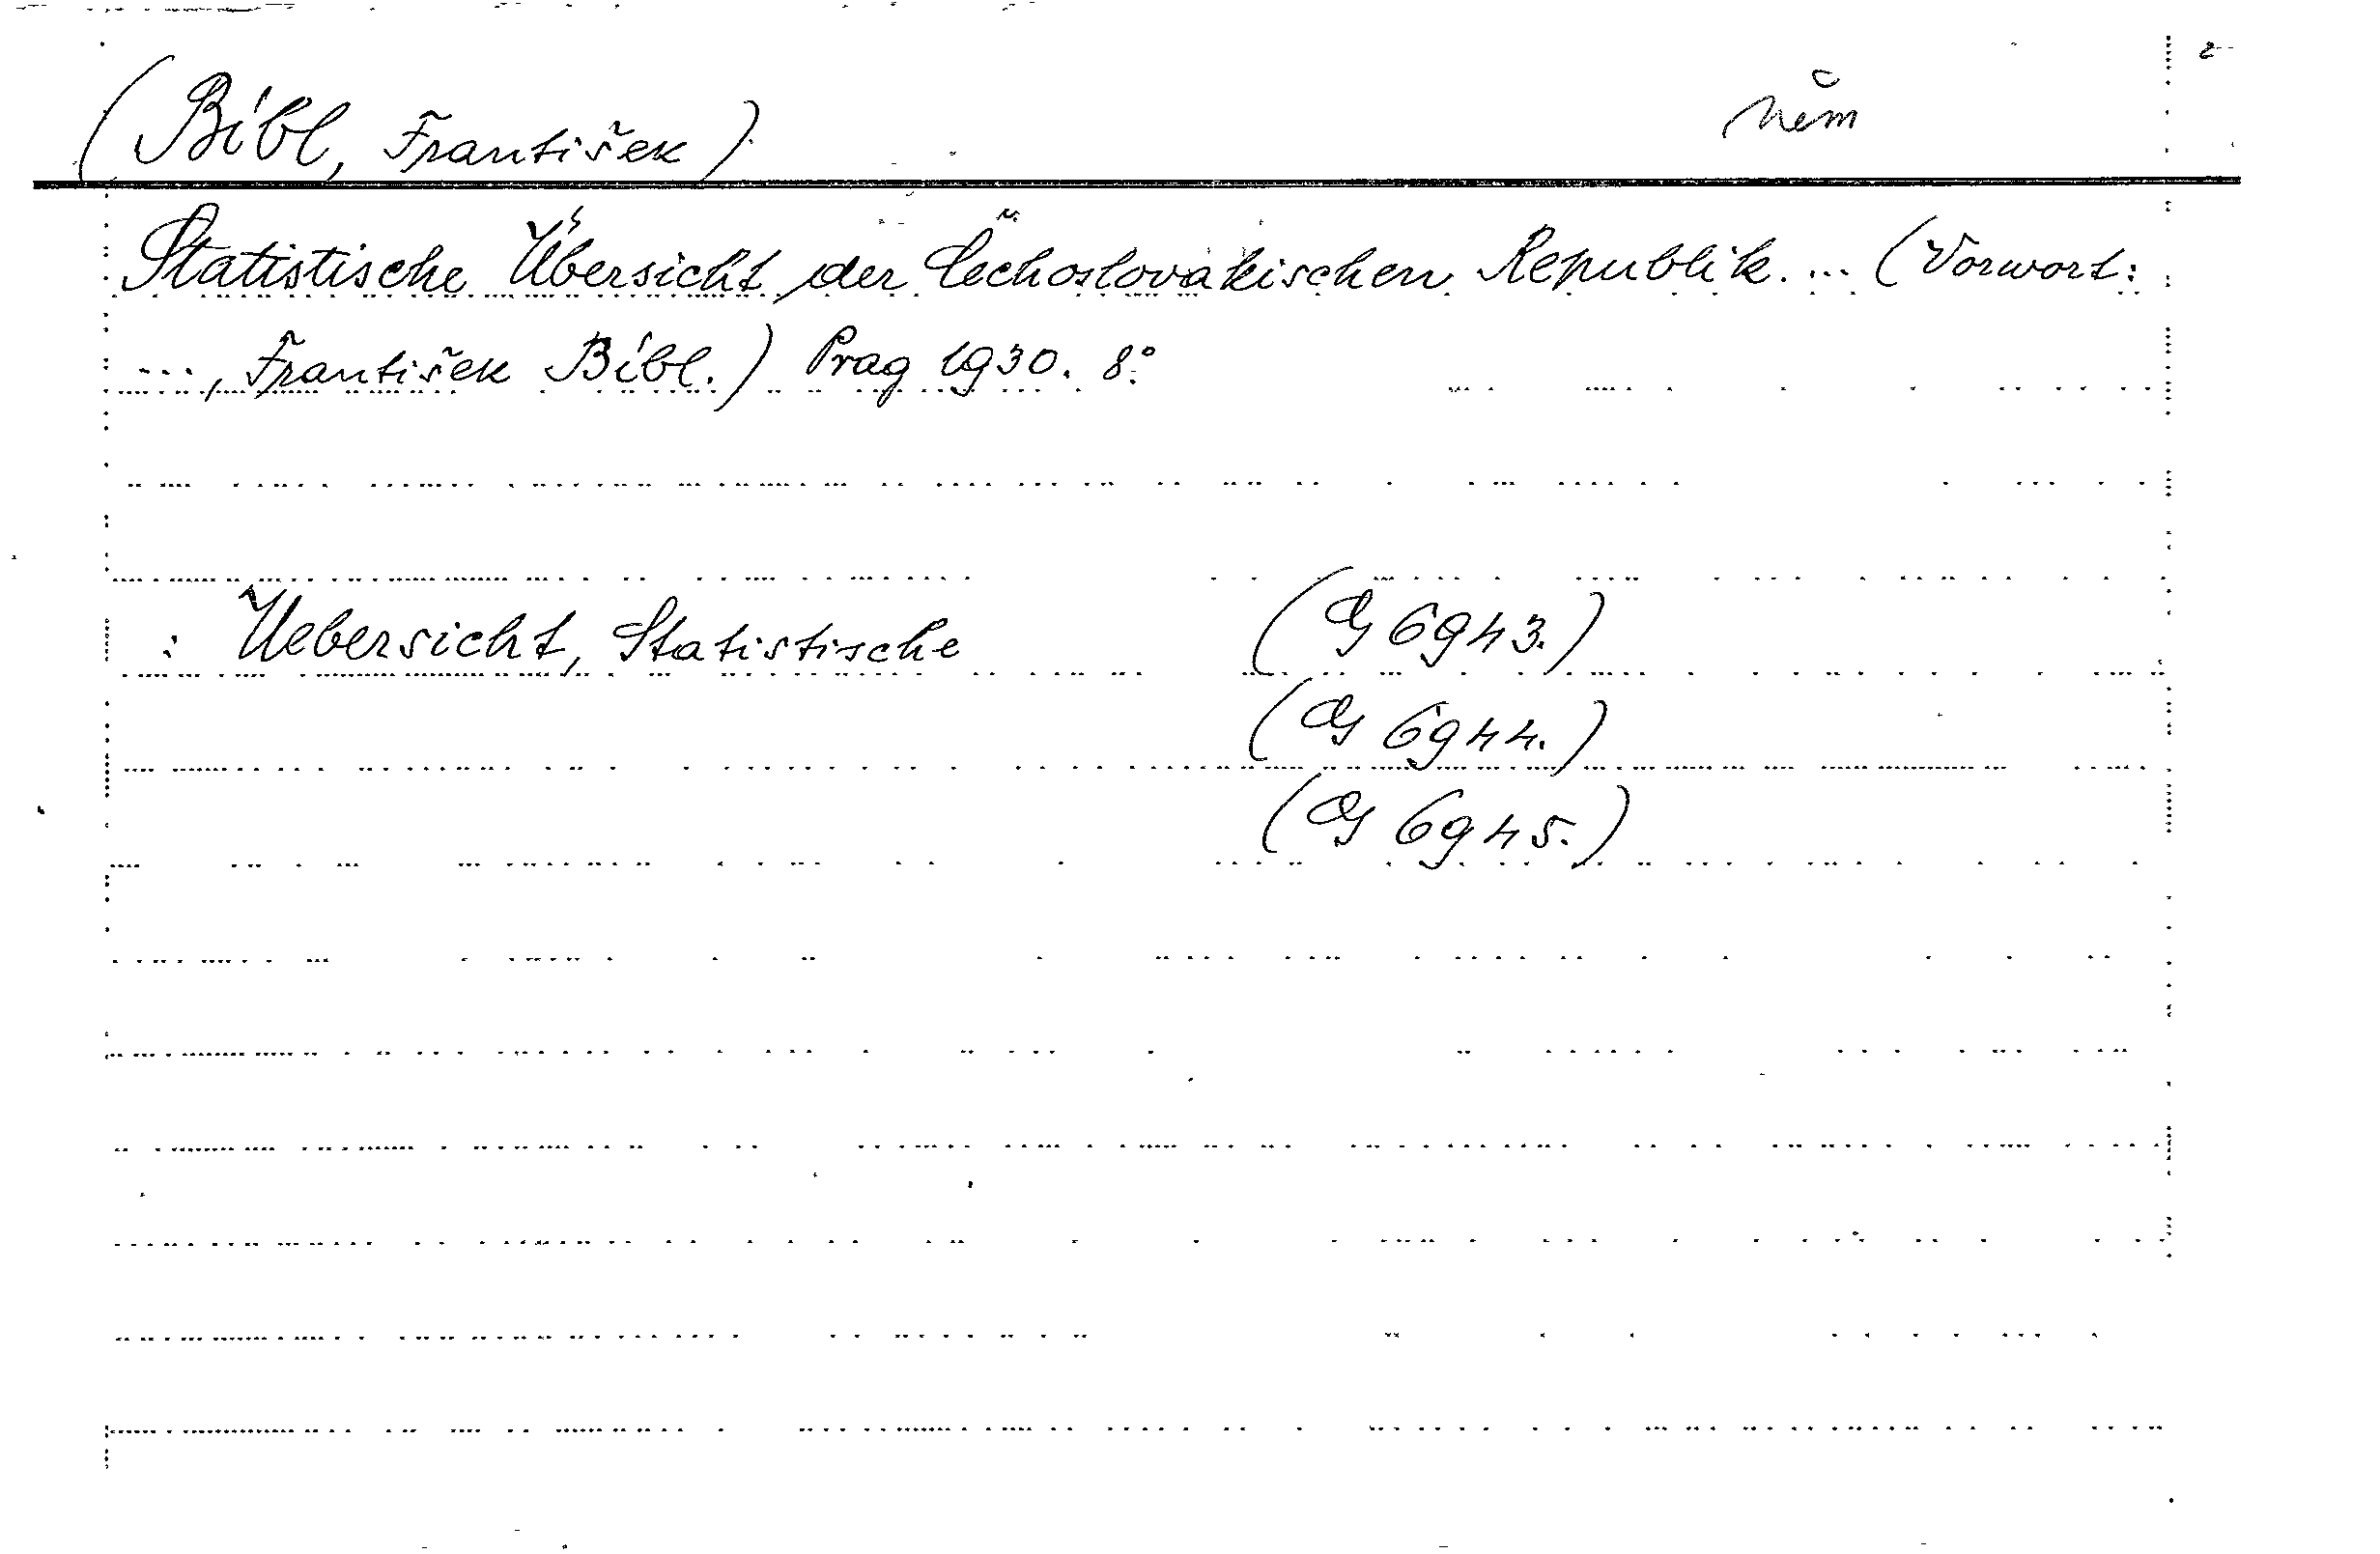 (Bíbl, František) něm
Statistische Übersicht der Čechoslovakischen Republik. ... (Vorwort:
..., František Bíbl.) Prag 1930. 8°.
: Uebersicht, Statistische (G 6943.)
(G 6944.)
(G 6945.)